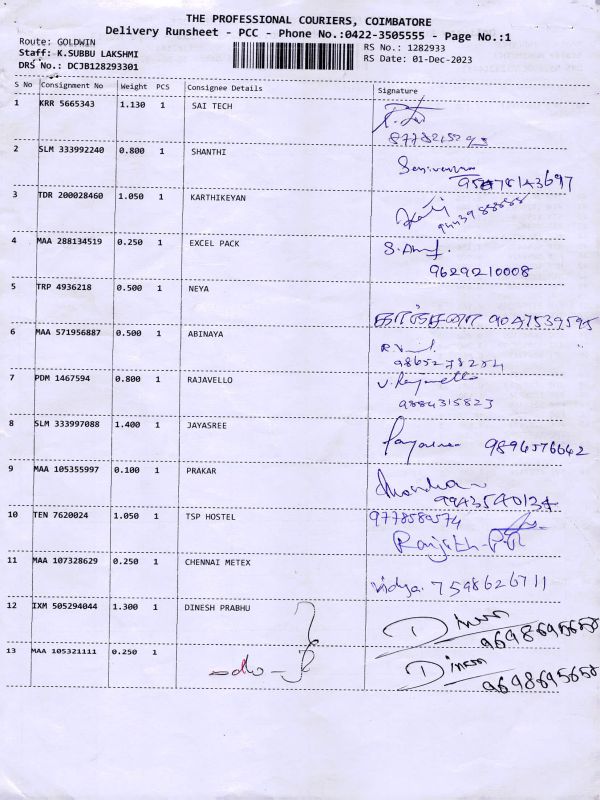 THE PROFESSIONAL COURIERS, COIMBATORE
Delivery Runsheet - PCC - Phone No.:0422-3505555 - Page No.:1
Route: GOLDWIN
RS No.: 1282933
Staff: K.SUBBU LAKSHMI
RS Date: 01-Dec-2023
DRS No.: DCJB128293301
S No Consignment No Weight PCS Consignee Details Signature
1 KRR 5665343 1.130 1 SAI TECH
2 SLM 333992240 0.800 1 SHANTHI
3 TDR 200028460 1.050 1 KARTHIKEYAN
4 MAA 288134519 0.250 1 EXCEL PACK
9629210008
5 TRP 4936218 0.500 1 NEYA
9047539595
6 MAA 571956887 0.500 1 ABINAYA
7 PDM 1467594 0.800 1 RAJAVELLO
9884315823
8 SLM 333997088 1.400 1 JAYASREE
Jayasree 9896576642
9 MAA 105355997 0.100 1 PRAKAR
9943540134
10 TEN 7620024 1.050 1 TSP HOSTEL
9778589574
Ranjith
11 MAA 107328629 0.250 1 CHENNAI METEX
Vidya 7598626711
12 IXM 505294044 1.300 1 DINESH PRABHU
Dinesh
9698695658
13 MAA 105321111 0.250 1
Dinesh
9698695658